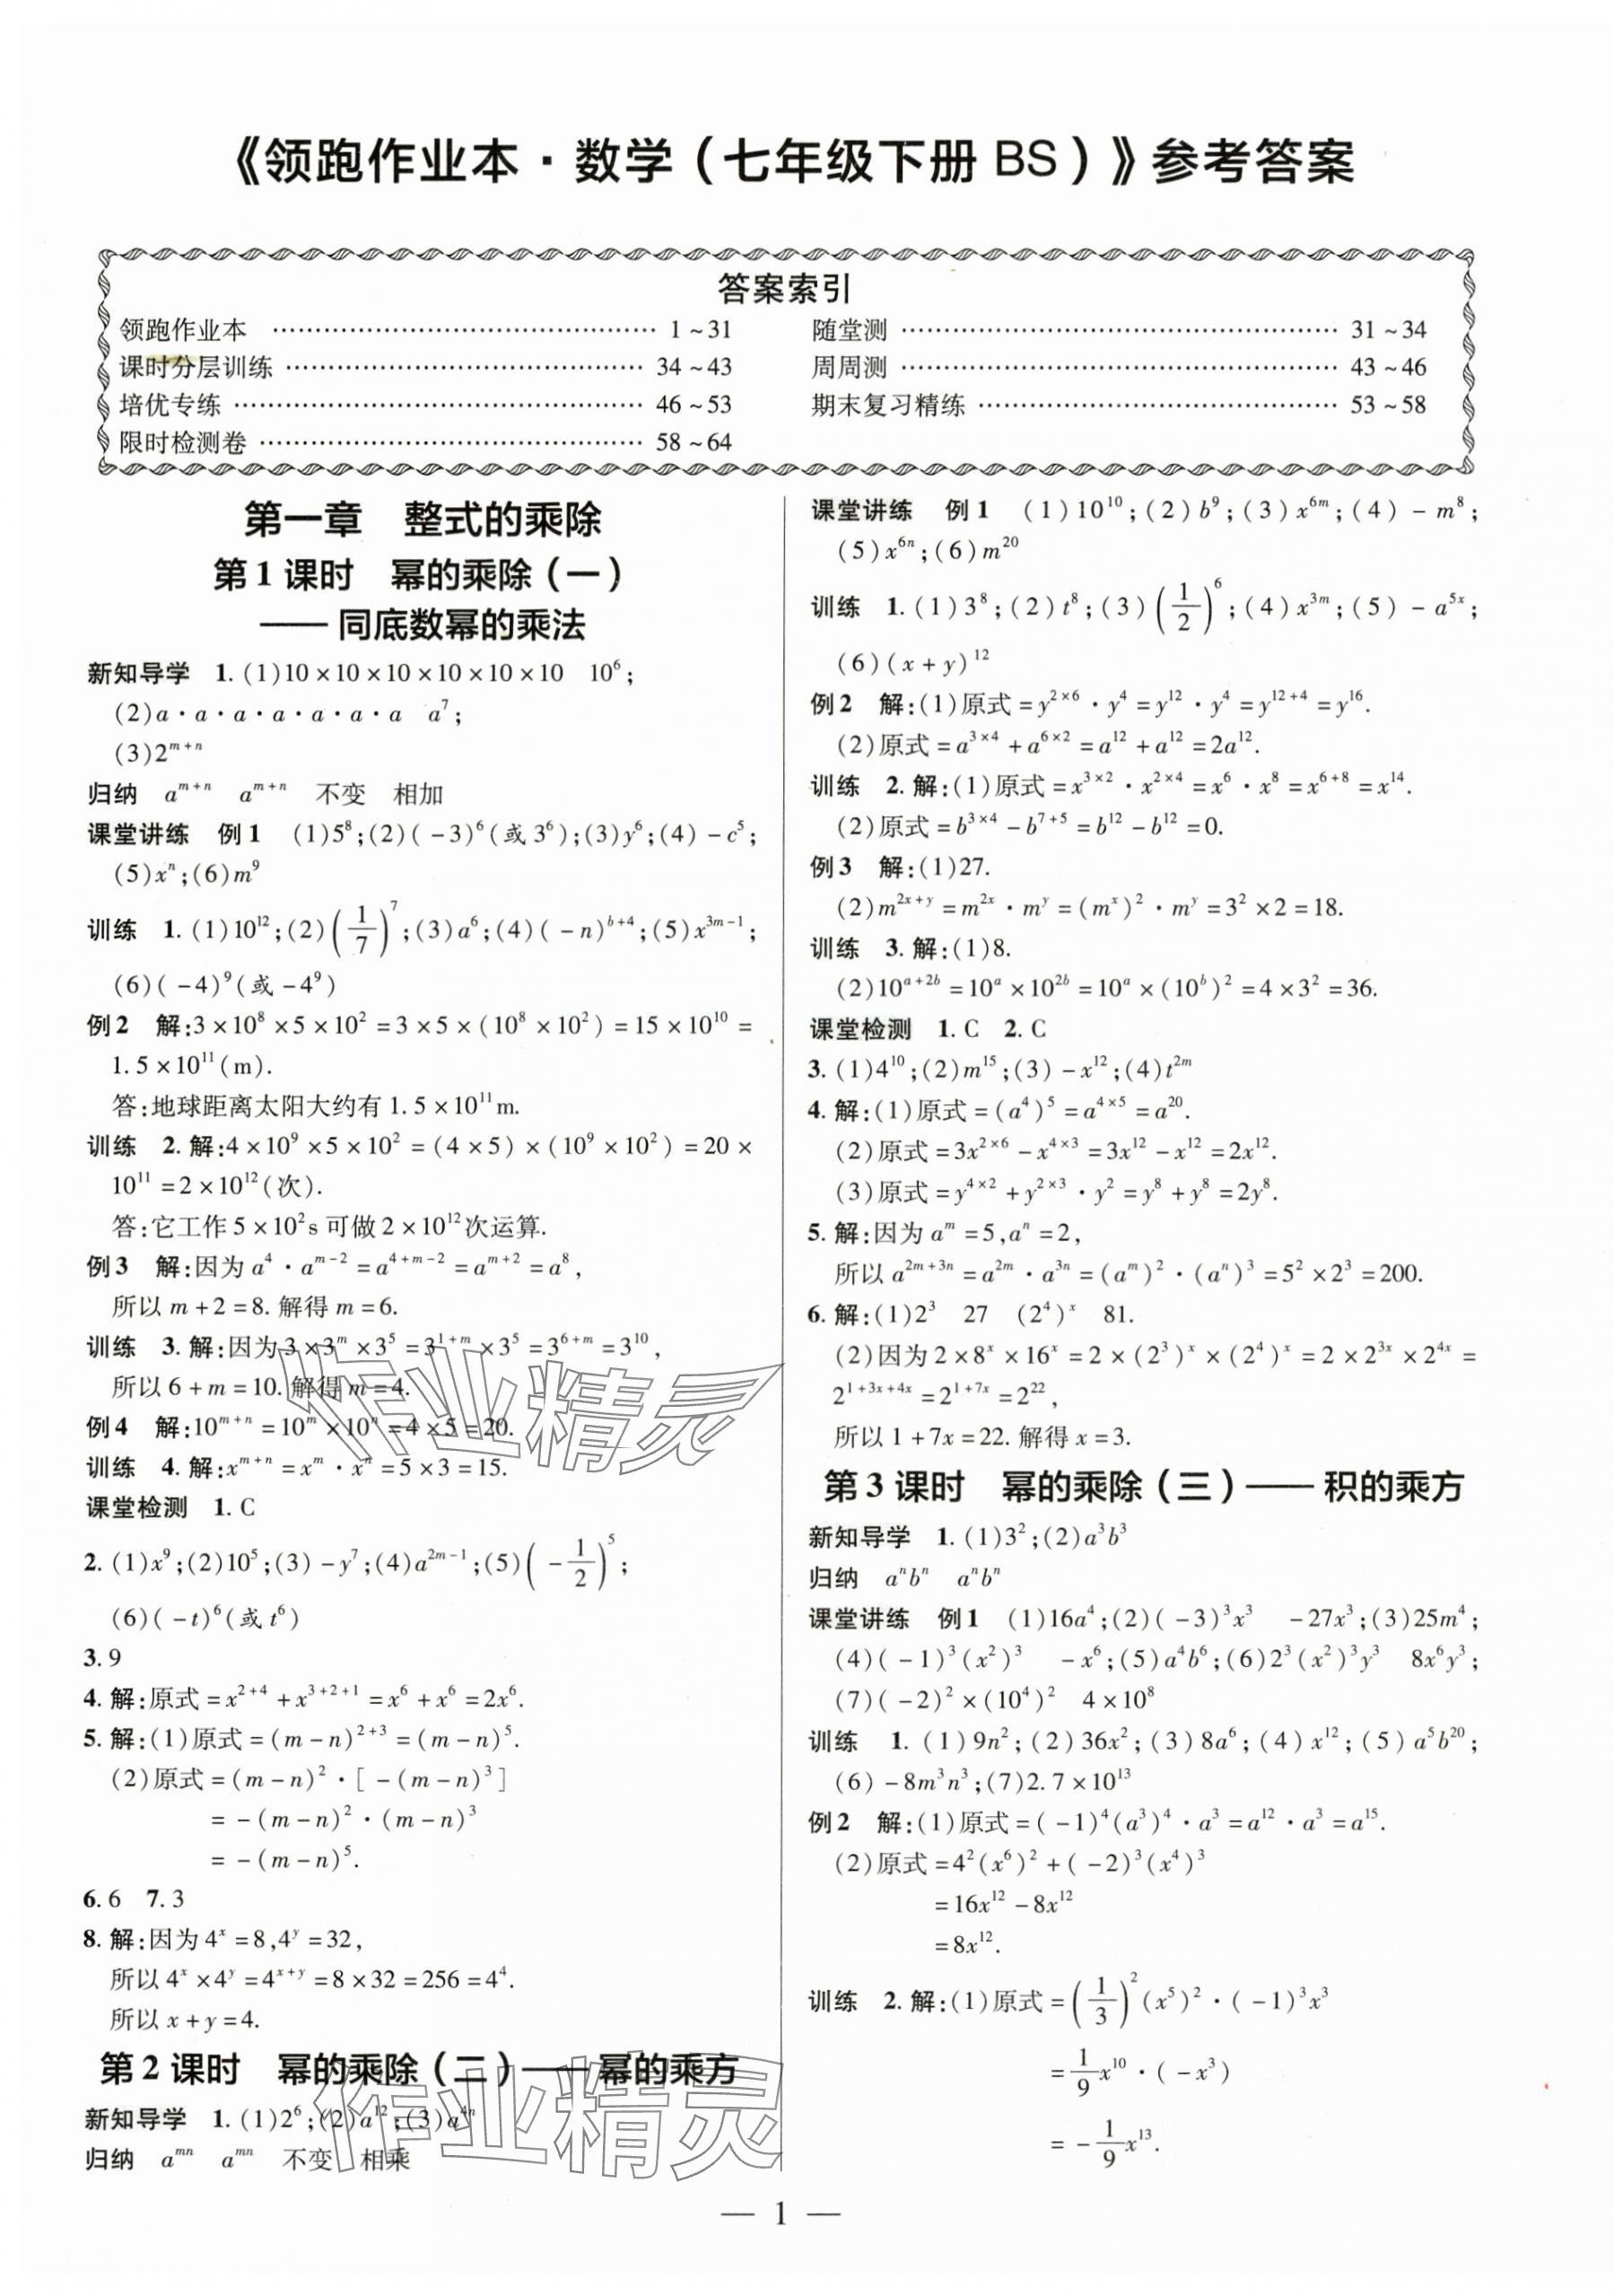 《领跑作业本·数学（七年级下册 BS）》参考答案
答案索引
领跑作业本 …… 1~31
随堂测 …… 31~34
课时分层训练 …… 34~43
周周测 …… 43~46
培优专练 …… 46~53
期末复习精练 …… 53~58
限时检测卷 …… 58~64
第一章 整式的乘除
第 1 课时 幂的乘除（一）
—— 同底数幂的乘法
新知导学 1. (1)10×10×10×10×10×10 10⁶;
(2)a·a·a·a·a·a·a a⁷;
(3)2^{m+n}
归纳 a^{m+n} a^{m+n} 不变 相加
课堂讲练 例1 (1)5⁸;(2)(-3)⁶(或3⁶);(3)y⁶;(4)-c⁵;
(5)xⁿ;(6)m⁹
训练 1. (1)10¹²;(2)(1/7)⁷;(3)a⁶;(4)(-n)^{b+4};(5)x^{3m-1};
(6)(-4)⁹(或-4⁹)
例2 解:3×10⁸×5×10²=3×5×(10⁸×10²)=15×10¹⁰=
1.5×10¹¹(m).
答:地球距离太阳大约有1.5×10¹¹m.
训练 2. 解:4×10⁹×5×10²=(4×5)×(10⁹×10²)=20×
10¹¹=2×10¹²(次).
答:它工作5×10²s可做2×10¹²次运算.
例3 解:因为a⁴·a^{m-2}=a^{4+m-2}=a^{m+2}=a⁸,
所以m+2=8. 解得m=6.
训练 3. 解:因为3×3^m×3⁵=3^{1+m}×3⁵=3^{6+m}=3¹⁰,
所以6+m=10. 解得m=4.
例4 解:10^{m+n}=10^m×10^n=4×5=20.
训练 4. 解:x^{m+n}=x^m·x^n=5×3=15.
课堂检测 1. C
2. (1)x⁹;(2)10⁵;(3)-y⁷;(4)a^{2m-1};(5)(-1/2)⁵;
(6)(-t)⁶(或t⁶)
3. 9
4. 解:原式=x^{2+4}+x^{3+2+1}=x⁶+x⁶=2x⁶.
5. 解:(1)原式=(m-n)^{2+3}=(m-n)⁵.
(2)原式=(m-n)²·[-(m-n)³]
=-(m-n)²·(m-n)³
=-(m-n)⁵.
6. 6 7. 3
8. 解:因为4^x=8,4^y=32,
所以4^x×4^y=4^{x+y}=8×32=256=4⁴.
所以x+y=4.
第 2 课时 幂的乘除（二）—— 幂的乘方
新知导学 1. (1)2⁶;(2)a¹²;(3)a^{4n}
归纳 a^{mn} a^{mn} 不变 相乘
课堂讲练 例1 (1)10¹⁰;(2)b⁹;(3)x^{6m};(4)-m⁸;
(5)x^{6n};(6)m²⁰
训练 1. (1)3⁸;(2)t⁸;(3)(1/2)⁶;(4)x^{3m};(5)-a^{5x};
(6)(x+y)¹²
例2 解:(1)原式=y^{2×6}·y⁴=y¹²·y⁴=y^{12+4}=y¹⁶.
(2)原式=a^{3×4}+a^{6×2}=a¹²+a¹²=2a¹².
训练 2. 解:(1)原式=x^{3×2}·x^{2×4}=x⁶·x⁸=x^{6+8}=x¹⁴.
(2)原式=b^{3×4}-b^{7+5}=b¹²-b¹²=0.
例3 解:(1)27.
(2)m^{2x+y}=m^{2x}·m^y=(m^x)²·m^y=3²×2=18.
训练 3. 解:(1)8.
(2)10^{a+2b}=10^a×10^{2b}=10^a×(10^b)²=4×3²=36.
课堂检测 1. C 2. C
3. (1)4¹⁰;(2)m¹⁵;(3)-x¹²;(4)t^{2m}
4. 解:(1)原式=(a⁴)⁵=a^{4×5}=a²⁰.
(2)原式=3x^{2×6}-x^{4×3}=3x¹²-x¹²=2x¹².
(3)原式=y^{4×2}+y^{2×3}·y²=y⁸+y⁸=2y⁸.
5. 解:因为a^m=5,a^n=2,
所以a^{2m+3n}=a^{2m}·a^{3n}=(a^m)²·(a^n)³=5²×2³=200.
6. 解:(1)2³ 27 (2⁴)^x 81.
(2)因为2×8^x×16^x=2×(2³)^x×(2⁴)^x=2×2^{3x}×2^{4x}=
2^{1+3x+4x}=2^{1+7x}=2²²,
所以1+7x=22. 解得x=3.
第 3 课时 幂的乘除（三）—— 积的乘方
新知导学 1. (1)3²;(2)a³b³
归纳 aⁿbⁿ aⁿbⁿ
课堂讲练 例1 (1)16a⁴;(2)(-3)³x³ -27x³;(3)25m⁴;
(4)(-1)³(x²)³ -x⁶;(5)a⁴b⁶;(6)2³(x²)³y³ 8x⁶y³;
(7)(-2)²×(10⁴)² 4×10⁸
训练 1. (1)9n²;(2)36x²;(3)8a⁶;(4)x¹²;(5)a⁵b²⁰;
(6)-8m³n³;(7)2.7×10¹³
例2 解:(1)原式=(-1)⁴(a³)⁴·a³=a¹²·a³=a¹⁵.
(2)原式=4²(x⁶)²+(-2)³(x⁴)³
=16x¹²-8x¹²
=8x¹².
训练 2. 解:(1)原式=(1/3)²(x⁵)²·(-1)³x³
=1/9x¹⁰·(-x³)
=-1/9x¹³.
作业精灵
作业精灵
— 1 —